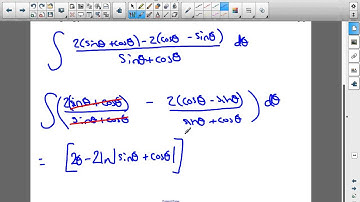 ∫ (2(sinθ + cosθ) - 2(cosθ - sinθ)) / (sinθ + cosθ) dθ
∫ ( 2(sinθ + cosθ) / (sinθ + cosθ) - 2(cosθ - sinθ) / (sinθ + cosθ) ) dθ
= [2θ - 2ln|sinθ + cosθ|]